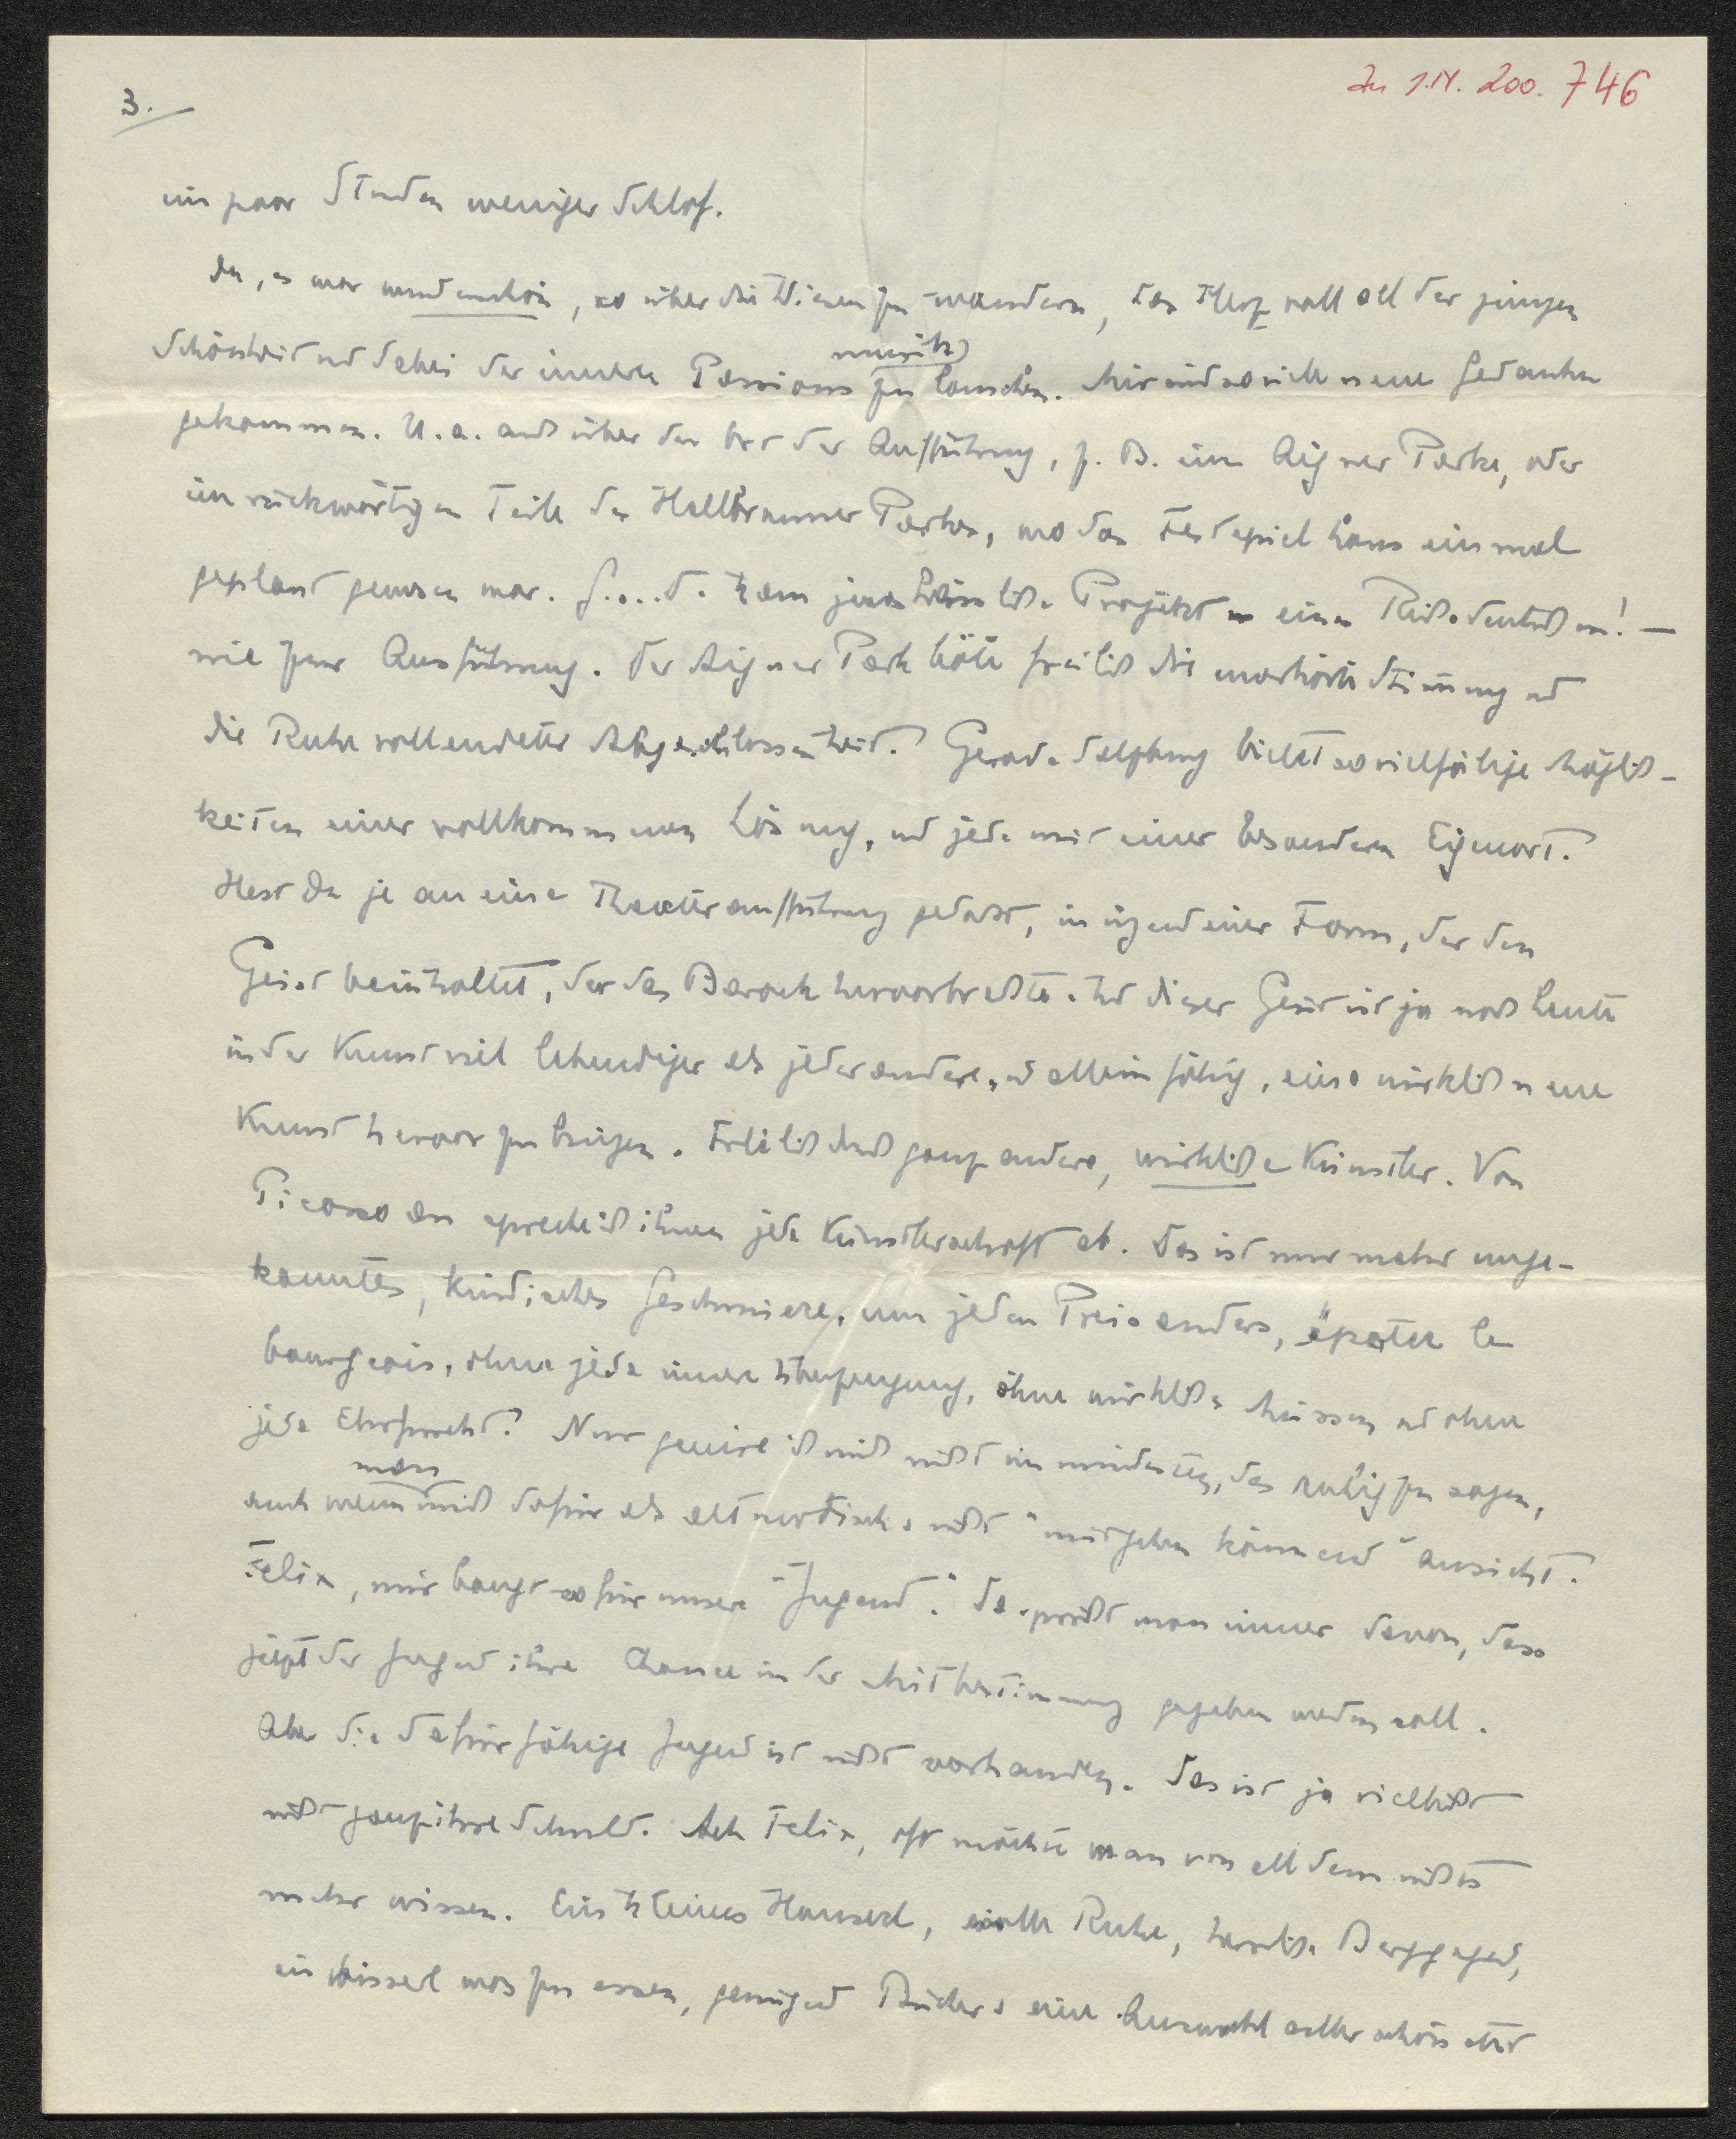 3.
Zu S.N. 200.746
ein paar Stunden weniger Schlaf.
Du, es war wunderschön, so über die Wiesen zu wandern, das Herz voll all der jungen
Schönheit und dabei der innern Passionsmusik zu lauschen. Mir sind so viele neue Gedanken
gekommen. U. a. auch über den Ort der Aufführung, z. B. im Aigner Parke, oder
im rückwärtigen Teile des Hellbrunner Parkes, wo das Festspielhaus einmal
geplant gewesen war. G....d. kam jenes Projekt eines Reichsdeutschen! —
nie zur Ausführung. Der Aigner Park hätte freilich die unerhörte Stimmung und
die Ruhe vollendeter Abgeschlossenheit. Gerade Salzburg bietet so vielfältige Möglich-
keiten einer vollkommenen Lösung, und jede mit einer besondern Eigenart.
Hast Du je an eine Theateraufführung gedacht, in irgendeiner Form, der den
Geist beinhaltet, der das Barock hervorbrachte. Und dieser Geist ist ja noch heute
in der Kunst viel lebendiger als jeder andere, und allein fähig, eine wirklich neue
Kunst hervorzubringen. Freilich durch ganz andere, wirkliche Künstler. Von
Picasso an spreche ich ihnen jede Künstlerschaft ab. Das ist nur mehr unge-
konntes, kindisches Geschmiere, um jeden Preis anders, épater le
bourgeois, ohne jede innere Überzeugung, ohne wirkliches Müssen und ohne
jede Ehrfurcht. Nur geniere ich mich nicht im mindesten, das ruhig zu sagen,
auch wenn man mich dafür als altmodisch u. nicht "mitgehen könnend" ansieht.
Felix, mir bangt so für unsere "Jugend". Da spricht man immer davon, dass
jetzt der Jugend ihre Chance in der Mitbestimmung gegeben werden soll.
Aber die dafür fähige Jugend ist nicht vorhanden. Das ist ja vielleicht
nicht ganz ihre Schuld. Ach Felix, oft möchte man von all dem nichts
mehr wissen. Ein kleines Hauserl, volle Ruhe, herrliche Berggegend,
ein bisserl was zu essen, genügend Bücher u. eine Auswahl allerschönster